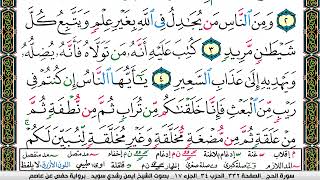 ٢ وَمِنَ النَّاسِ مَن يُجَٰدِلُ فِي ٱللَّهِ بِغَيْرِ عِلْمٍ وَيَتَّبِعُ كُلَّ
شَيْطَٰنٍ مَّرِيدٍ ٣ كُتِبَ عَلَيْهِ أَنَّهُۥ مَن تَوَلَّاهُ فَأَنَّهُۥ يُضِلُّهُۥ
وَيَهْدِيهِ إِلَىٰ عَذَابِ ٱلسَّعِيرِ ٤ يَٰٓأَيُّهَا ٱلنَّاسُ إِن كُنتُمْ فِي
رَيْبٍ مِّنَ ٱلْبَعْثِ فَإِنَّا خَلَقْنَٰكُم مِّن تُرَابٍ ثُمَّ مِن نُّطْفَةٍ ثُمَّ
مِنْ عَلَقَةٍ ثُمَّ مِن مُّضْغَةٍ مُّخَلَّقَةٍ وَغَيْرِ مُخَلَّقَةٍ لِّنُبَيِّنَ لَكُمْ
سورة الحج - الصفحة ٣٣٢ - الحزب ٣٤ - الجزء ١٧ - بصوت الشيخ أيمن رشدي سويد - برواية حفص عن عاصم